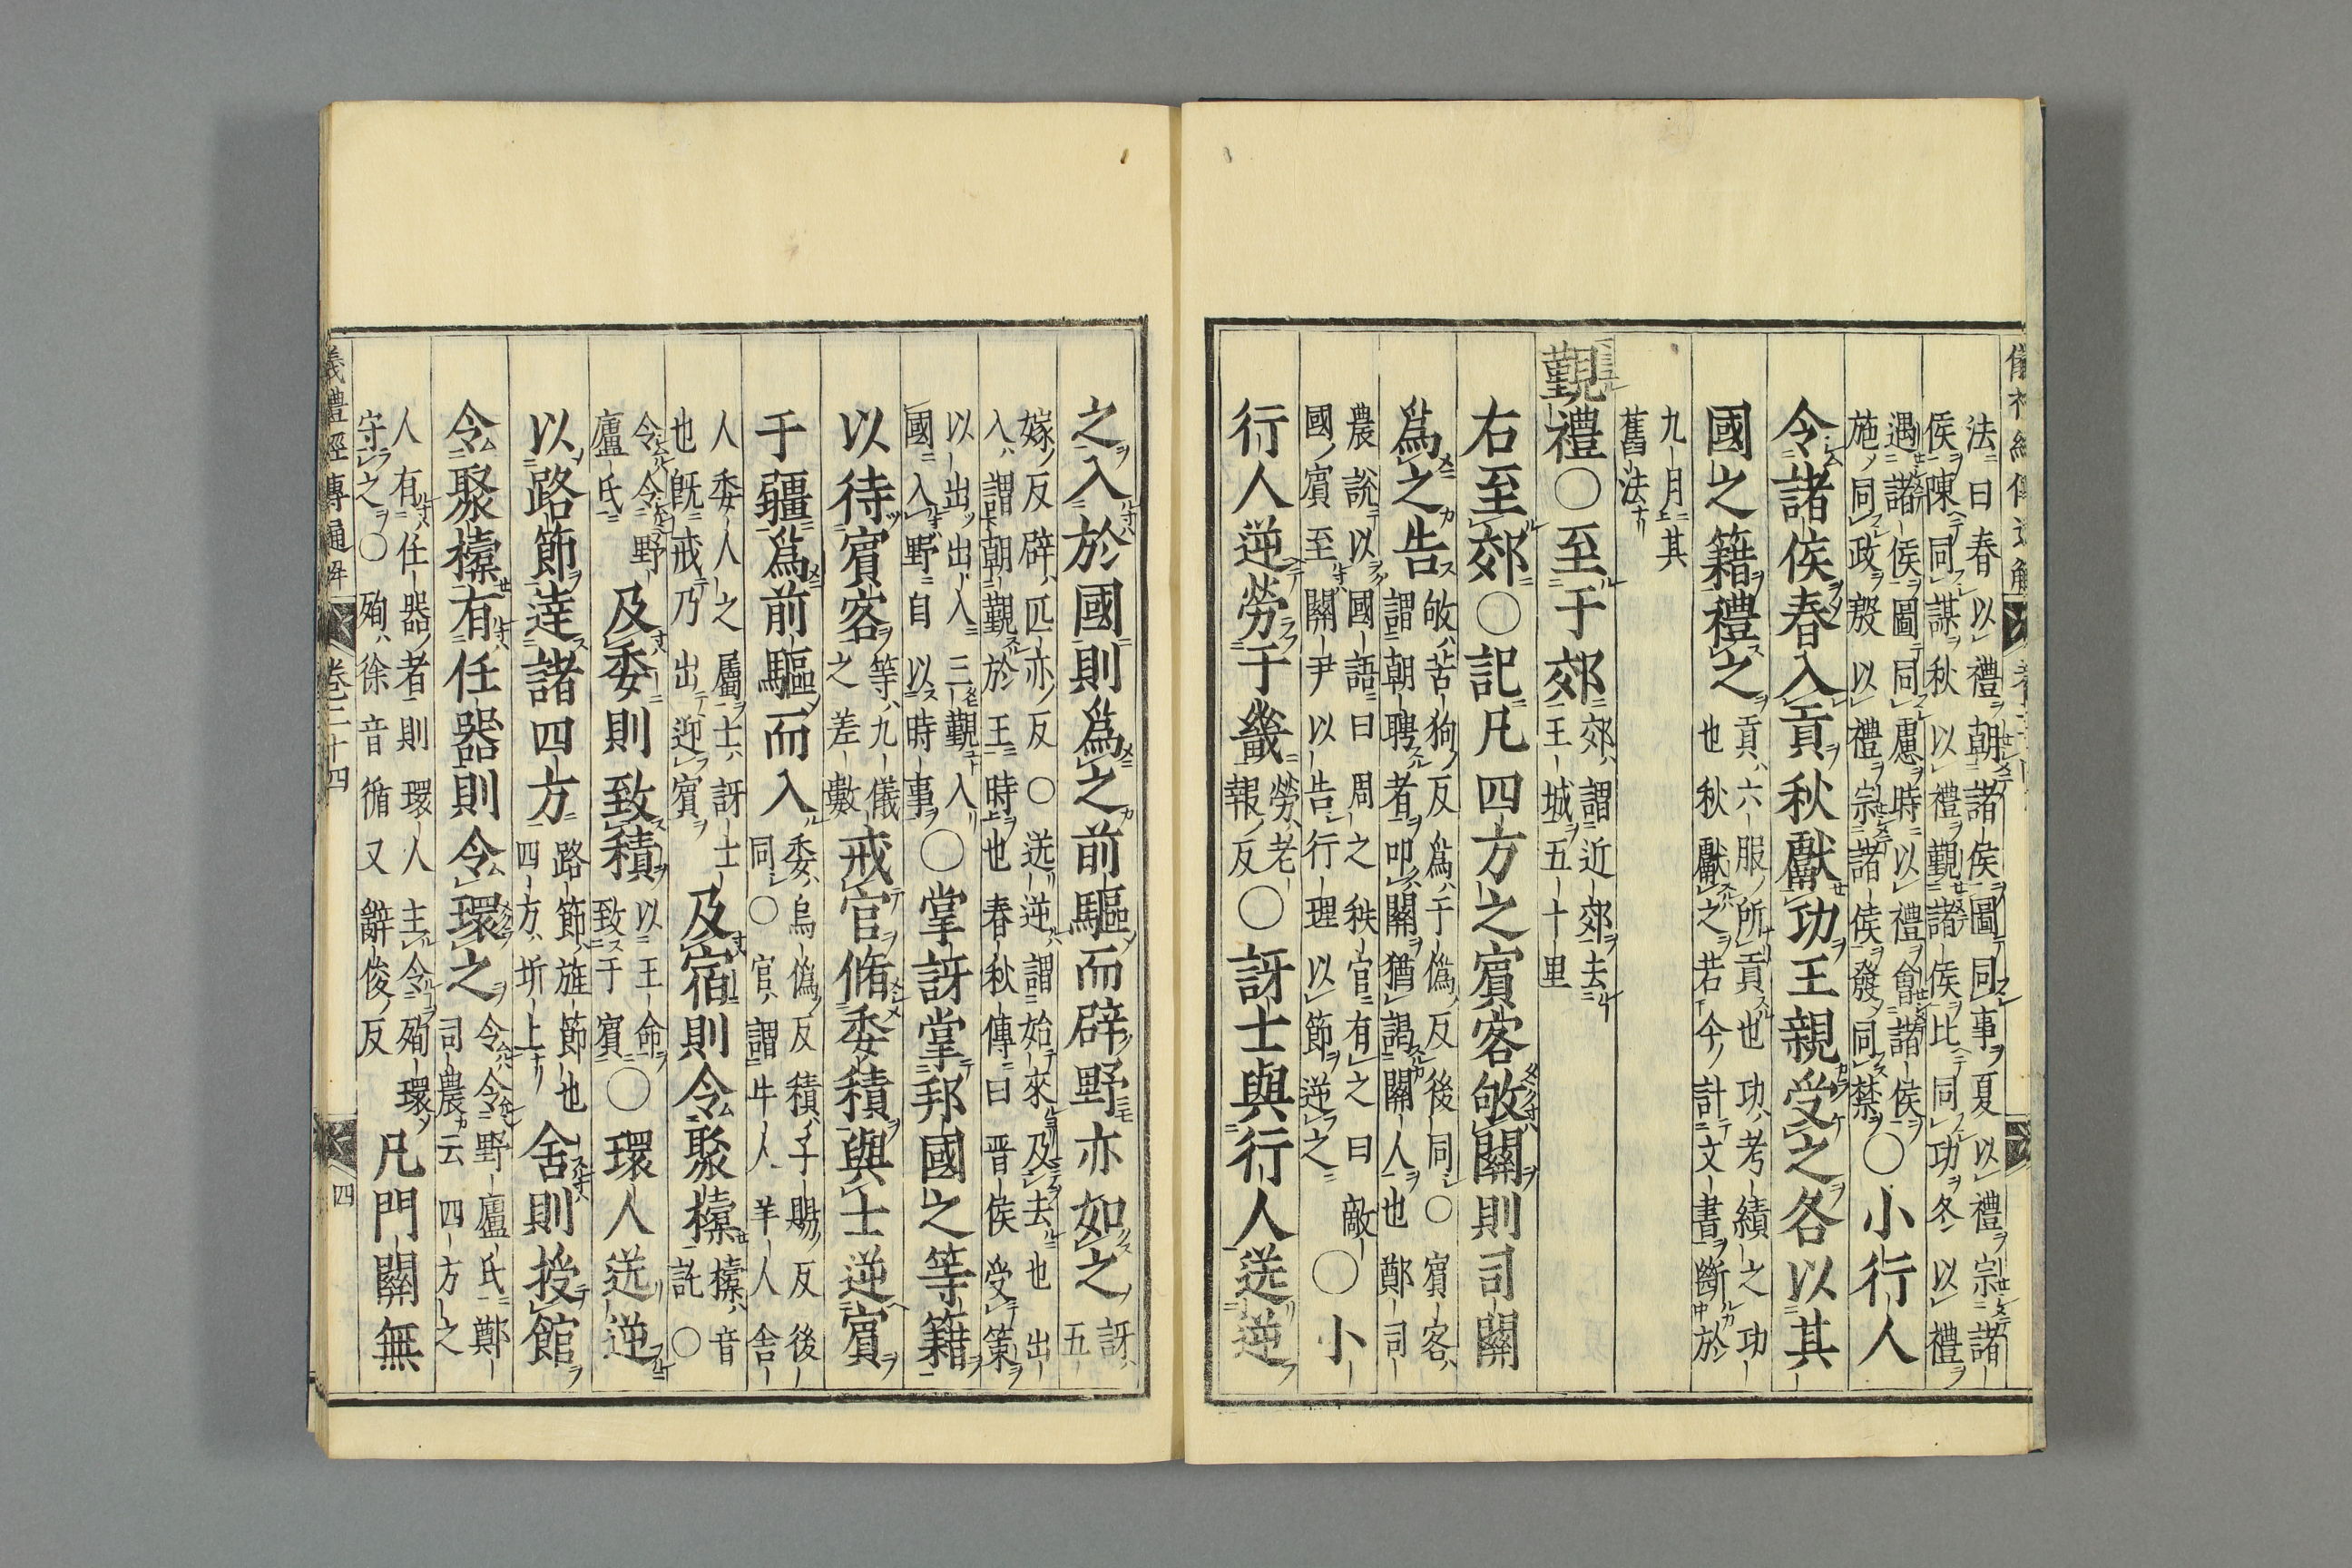 法曰春以禮朝諸侯圖同事夏以禮宗諸
侯陳同謀秋以禮覲諸侯比同功冬以禮
遇諸侯圖同慮時以禮會諸侯
施同政殷以禮宗諸侯發同禁
○小行人
令諸侯春入貢秋獻功王親受之各以其
國之籍禮之
貢六服所貢也功考績之功
也秋獻之若今計文書斷於
九月其
舊法
覲禮○至于郊
郊謂近郊去
王城五十里
右至郊○記凡四方之賓客敂關則司關
爲之告
敂苦狗反爲于僞反後同○賓客
謂朝聘者叩關猶謁關人也鄭司
農說以國語曰周之秩官有之曰敵
國賓至關尹以告行理以節逆之
○小
行人逆勞于畿
勞老
報反
○訝士與行人送逆
之入於國則爲之前驅而辟野亦如之
訝
五
嫁反辟匹亦反○送逆謂始來及去也出
入謂朝覲於王時也春秋傳曰晋侯受策
以出出入三覲入
國入野自以時事
○掌訝掌邦國之等籍
以待賓客
等九儀
之差數
戒官脩委積與士逆賓
于疆爲前驅而入
委烏僞反積子賜反後
同○官謂牛人羊人舍
人委人之屬士訝士
也既戒乃出迎賓
及宿則令聚㯓
㯓音
託○
令令野
廬氏
及委則致積
以王命
致于賓
○環人送逆
以路節達諸四方
路節旌節也
四方圻上
舍則授館
令聚㯓有任器則令環之
令令野廬氏鄭
司農云四方之
人有任器者則環人主令殉環
守之○殉徐音循又辭俊反
凡門關無
禮經傳通解 卷二十四 四